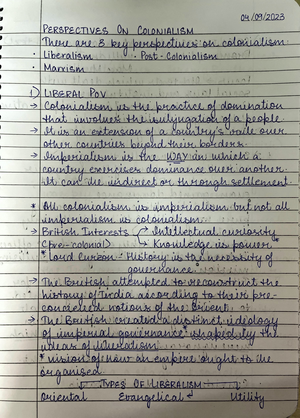 04/09/2023
PERSPECTIVES ON COLONIALISM
There are 3 key perspectives on colonialism.
· Liberalism · Post-Colonialism
· Marxism
1) LIBERAL POV
→ Colonialism is the practice of domination
that involves the subjugation of a people.
→ It is an extension of a country's rule over
other countries beyond their borders.
→ Imperialism is the WAY in which a
country exercises dominance over another.
It can be indirect or through settlement.
* All colonialism is imperialism but not all
imperialism is colonialism.
→ British Interests → Intellectual curiosity
(pre-colonial) → Knowledge is power
* Lord Curzon - History is the necessity of
governance.
→ The British attempted to reconstruct the
history of India according to their pre-
conceived notions of the Orient.
→ The British created a distinct ideology
of imperial governance* shaped by the
ideas of liberalism.
* vision of how an empire ought to be
organised.
TYPES OF LIBERALISM
Oriental Evangelical Utility